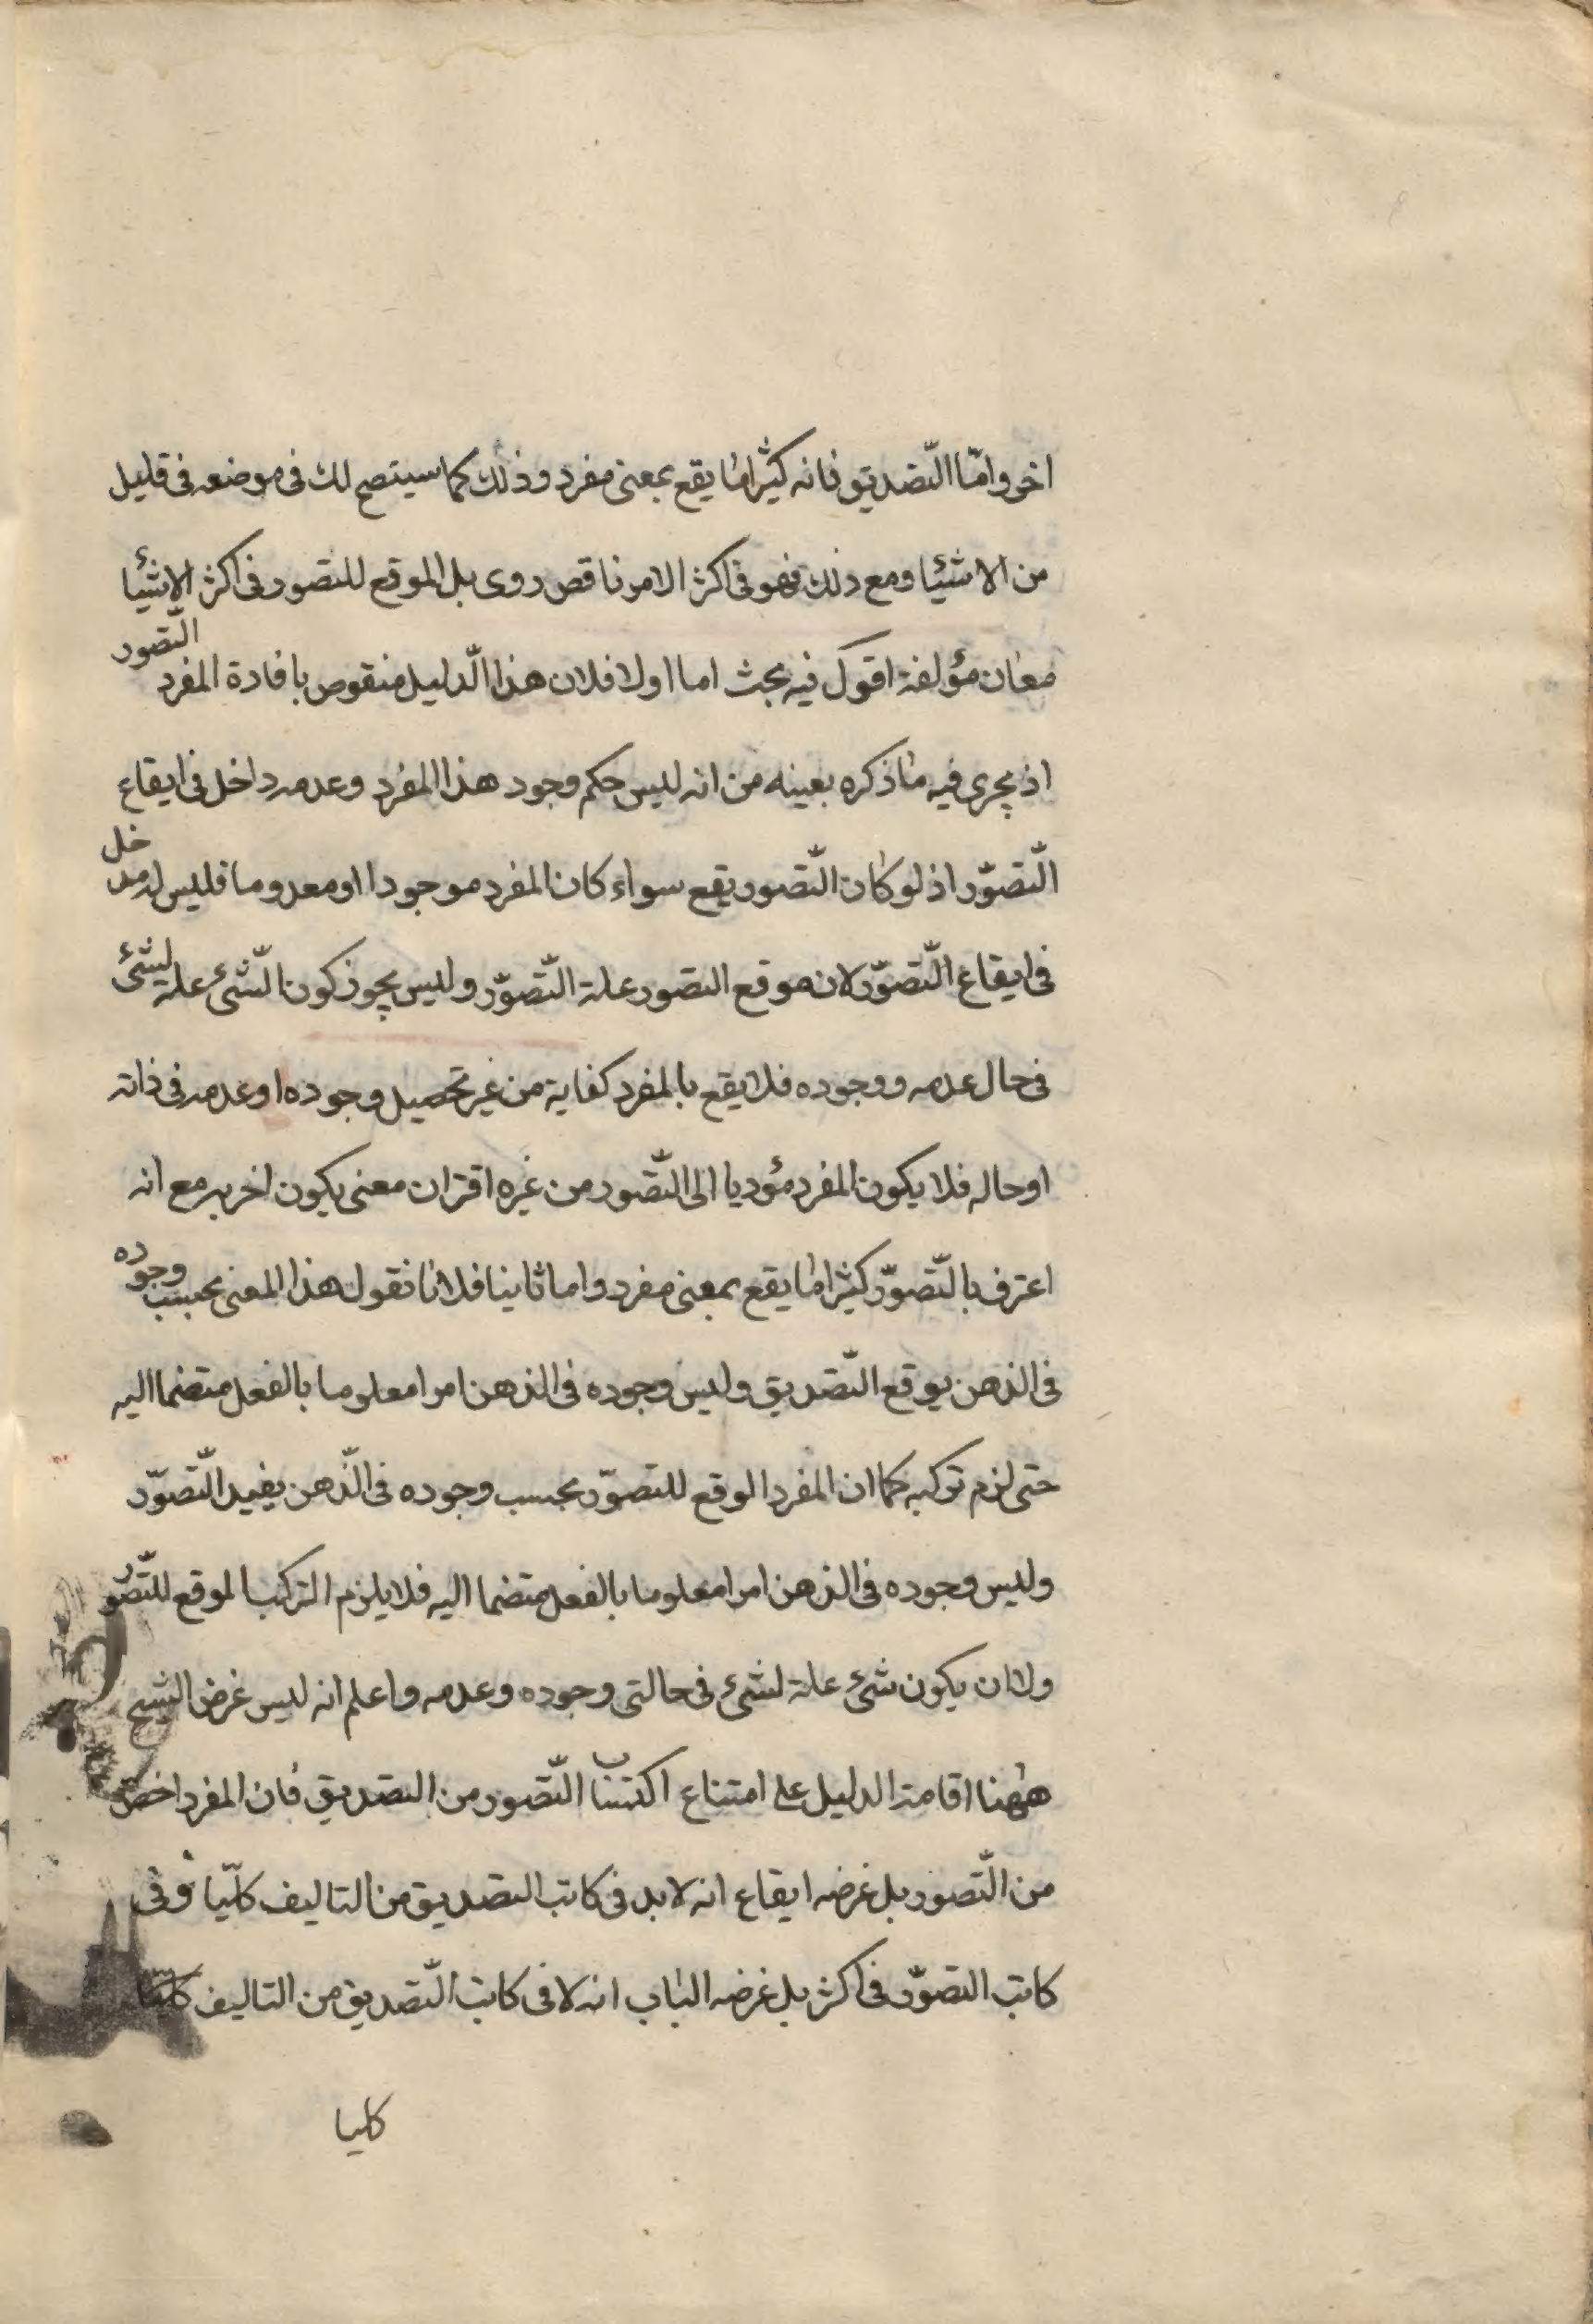 اخر وامّا التّصديق فانه كثيرا ما يقع بمعنى مفرد وذلك كما سيتضح لك فى موضعه فى قليل
من الاشيئا ومع ذلك فهو فى اكثر الامر ناقص روى بل الموقع للتصور فى اكثر الاشيئا
معان مؤلفة اقول فيه بحث اما اولا فلان هذا الّدليل منقوص بافادة المفرد التّصور
اذ يجرى فيه ما ذكره بعينه من انه ليس حكم وجود هذا المفرد وعدمه داخل فى ايقاع
التّصوّر اذ لو كان التّصور يقع سواء كان المفرد موجودا او معدوما فليس له مدخل
فى ايقاع التّصوّر لان موقع التصور علة التّصوّر وليس يجوز كون الشّئ علة لشئ
فى حال عدمه ووجوده فلا يقع بالمفرد كفاية من غير تحصيل وجوده او عدمه فى ذاته
او حاله فلا يكون المفرد مؤديا الى التّصور من غيره اقتران معنى يكون اخر به مع انه
اعترف بالتّصوّر كثيرا ما يقع بمعنى مفرد واما ثاينا فلانا نقول هذا المعنى بحسب وجوده
فى الذهن يوقع التّصديق وليس وجوده فى الذهن امرا معلوما بالفعل متضما اليه
حتى لزم تركبه كما ان المفرد الوقع للتصوّر بحسب وجوده فى الذّهن يفيد التّصوّر
وليس وجوده فى الذهن امرا معلوما بالفعل متضما اليه فلا يلزم التركب الموقع للتّصّور
ولا ان يكون شئ علة لشئ فى حالتى وجوده وعدمه واعلم انه ليس غرض الشيح
ههنا اقامة الدليل على امتناع اكتساب التّصور من التصديق فان المفرد اخص
من التّصور بل غرضه ايقاع انه لابد فى كاتب التصديق من التاليف كلّيا وفى
كاتب التصوّر فى اكثر بل غرضه الباب انه لا فى كاتب التّصديق من التاليف كليا
كليا